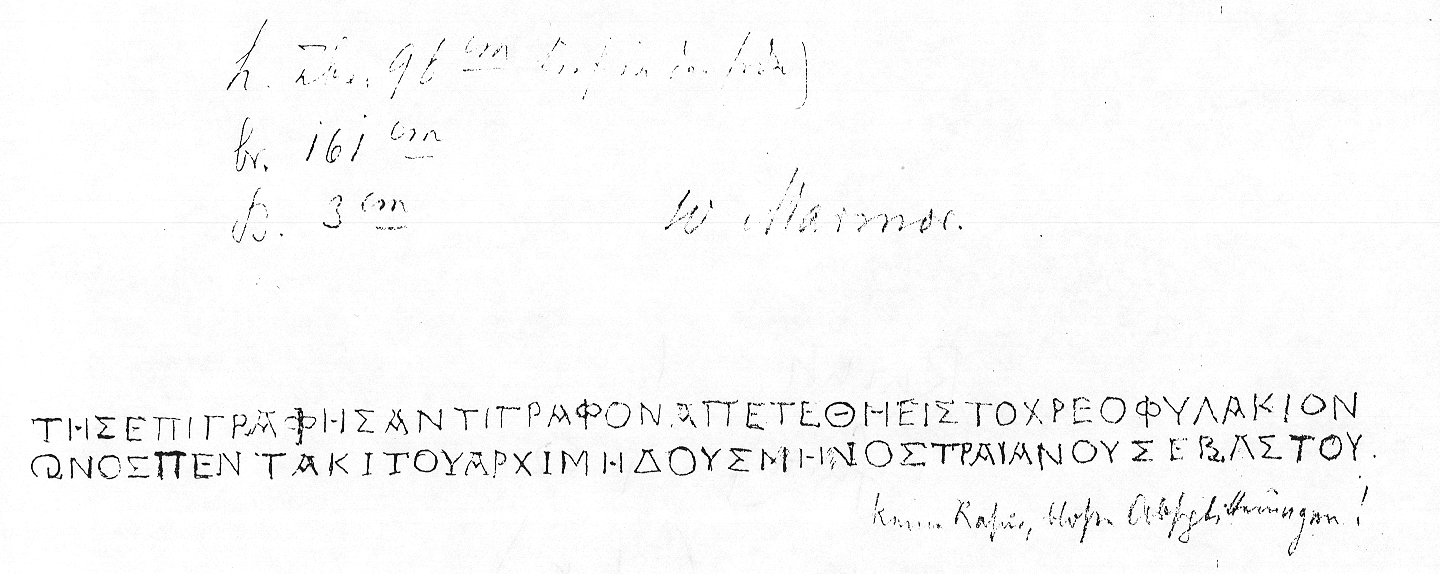 h. über 96 cm
br. 161 cm
D. 3 cm
w Marmor.
ΤΗΣΕΠΙΓΡΑΦΗΣΑΝΤΙΓΡΑΦΟΝΑΠΕΤΕΘΗΕΙΣΤΟΧΡΕΟΦΥΛΑΚΙΟΝ
ΩΝΟΣΠΕΝΤΑΚΙΤΟΥΑΡΧΙΜΗΔΟΥΣΜΗΝΟΣΤΡΑΙΑΝΟΥΣΕΒΑΣΤΟΥ.
Keine Rasur, bloße Absplitterungen!